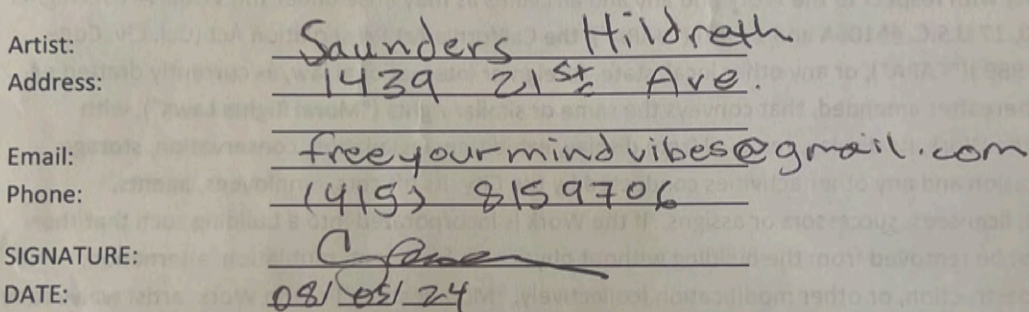 Artist: Saunders Hildreth
Address: 1439 21st Ave.
Email: freeyourmindvibes@gmail.com
Phone: (415) 8159706
SIGNATURE:
DATE: 08/05/24